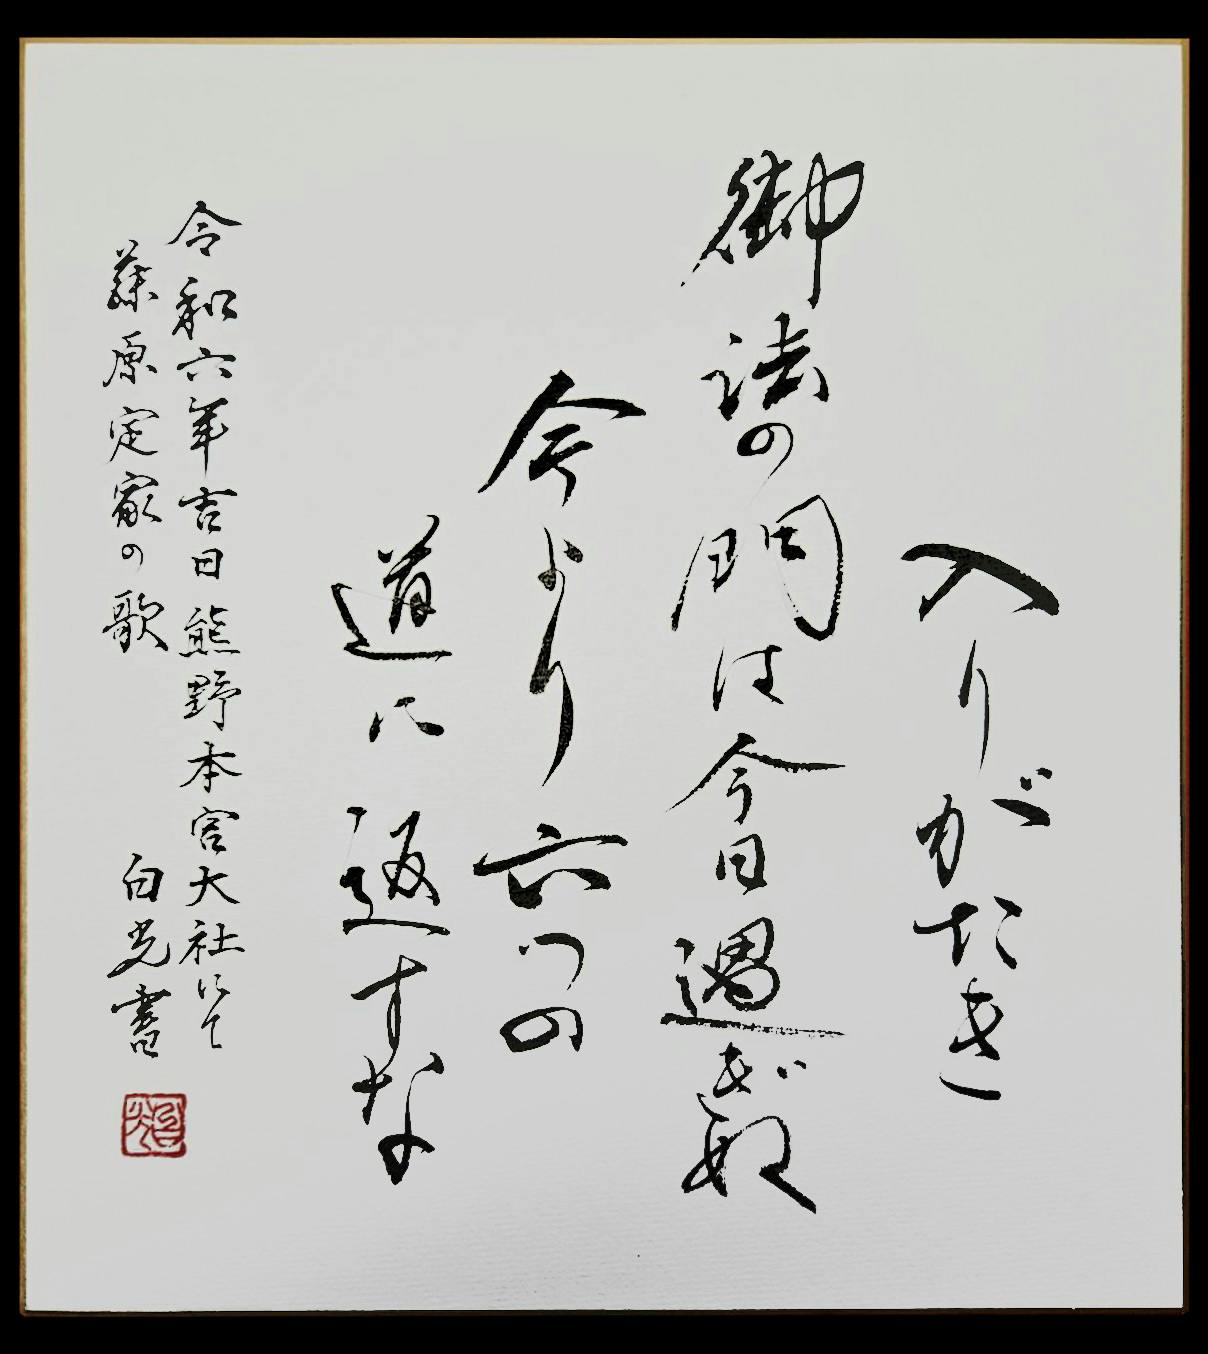 入りがたき
御法の門は今日過ぎぬ
今より六つの
道に返すな
令和六年吉日熊野本宮大社にて
藤原定家の歌 白光書